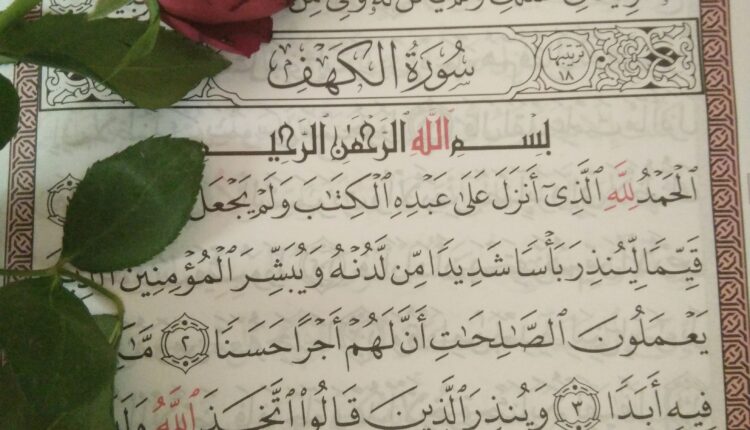 سُورَةُ الكَهْفِ
ترتيبها ١٨
بِسْمِ ٱللَّهِ ٱلرَّحْمَٰنِ ٱلرَّحِيمِ
ٱلْحَمْدُ لِلَّهِ ٱلَّذِىٓ أَنزَلَ عَلَىٰ عَبْدِهِ ٱلْكِتَٰبَ وَلَمْ يَجْعَل
قَيِّمًا لِّيُنذِرَ بَأْسًا شَدِيدًا مِّن لَّدُنْهُ وَيُبَشِّرَ ٱلْمُؤْمِنِينَ
يَعْمَلُونَ ٱلصَّٰلِحَٰتِ أَنَّ لَهُمْ أَجْرًا حَسَنًا ٢
فِيهِ أَبَدًا ٣ وَيُنذِرَ ٱلَّذِينَ قَالُوا۟ ٱتَّخَذَ ٱللَّهُ